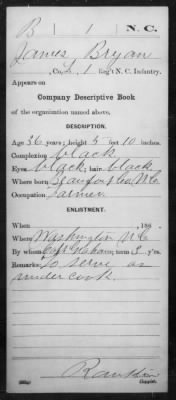 B | 1 | N.C.
James Bryan
, Co. L, 1 Reg't N. C. Infantry.
Appears on
Company Descriptive Book
of the organization named above.
DESCRIPTION.
Age 36 years; height 5 feet 10 inches.
Complexion black
Eyes black; hair black
Where born Beaufort Co N.C.
Occupation Farmer
ENLISTMENT.
When , 186 .
Where Washington N.C
By whom Capt Graham; term 3 y'rs.
Remarks: To serve as
under cook.
Rankin
Copyist.